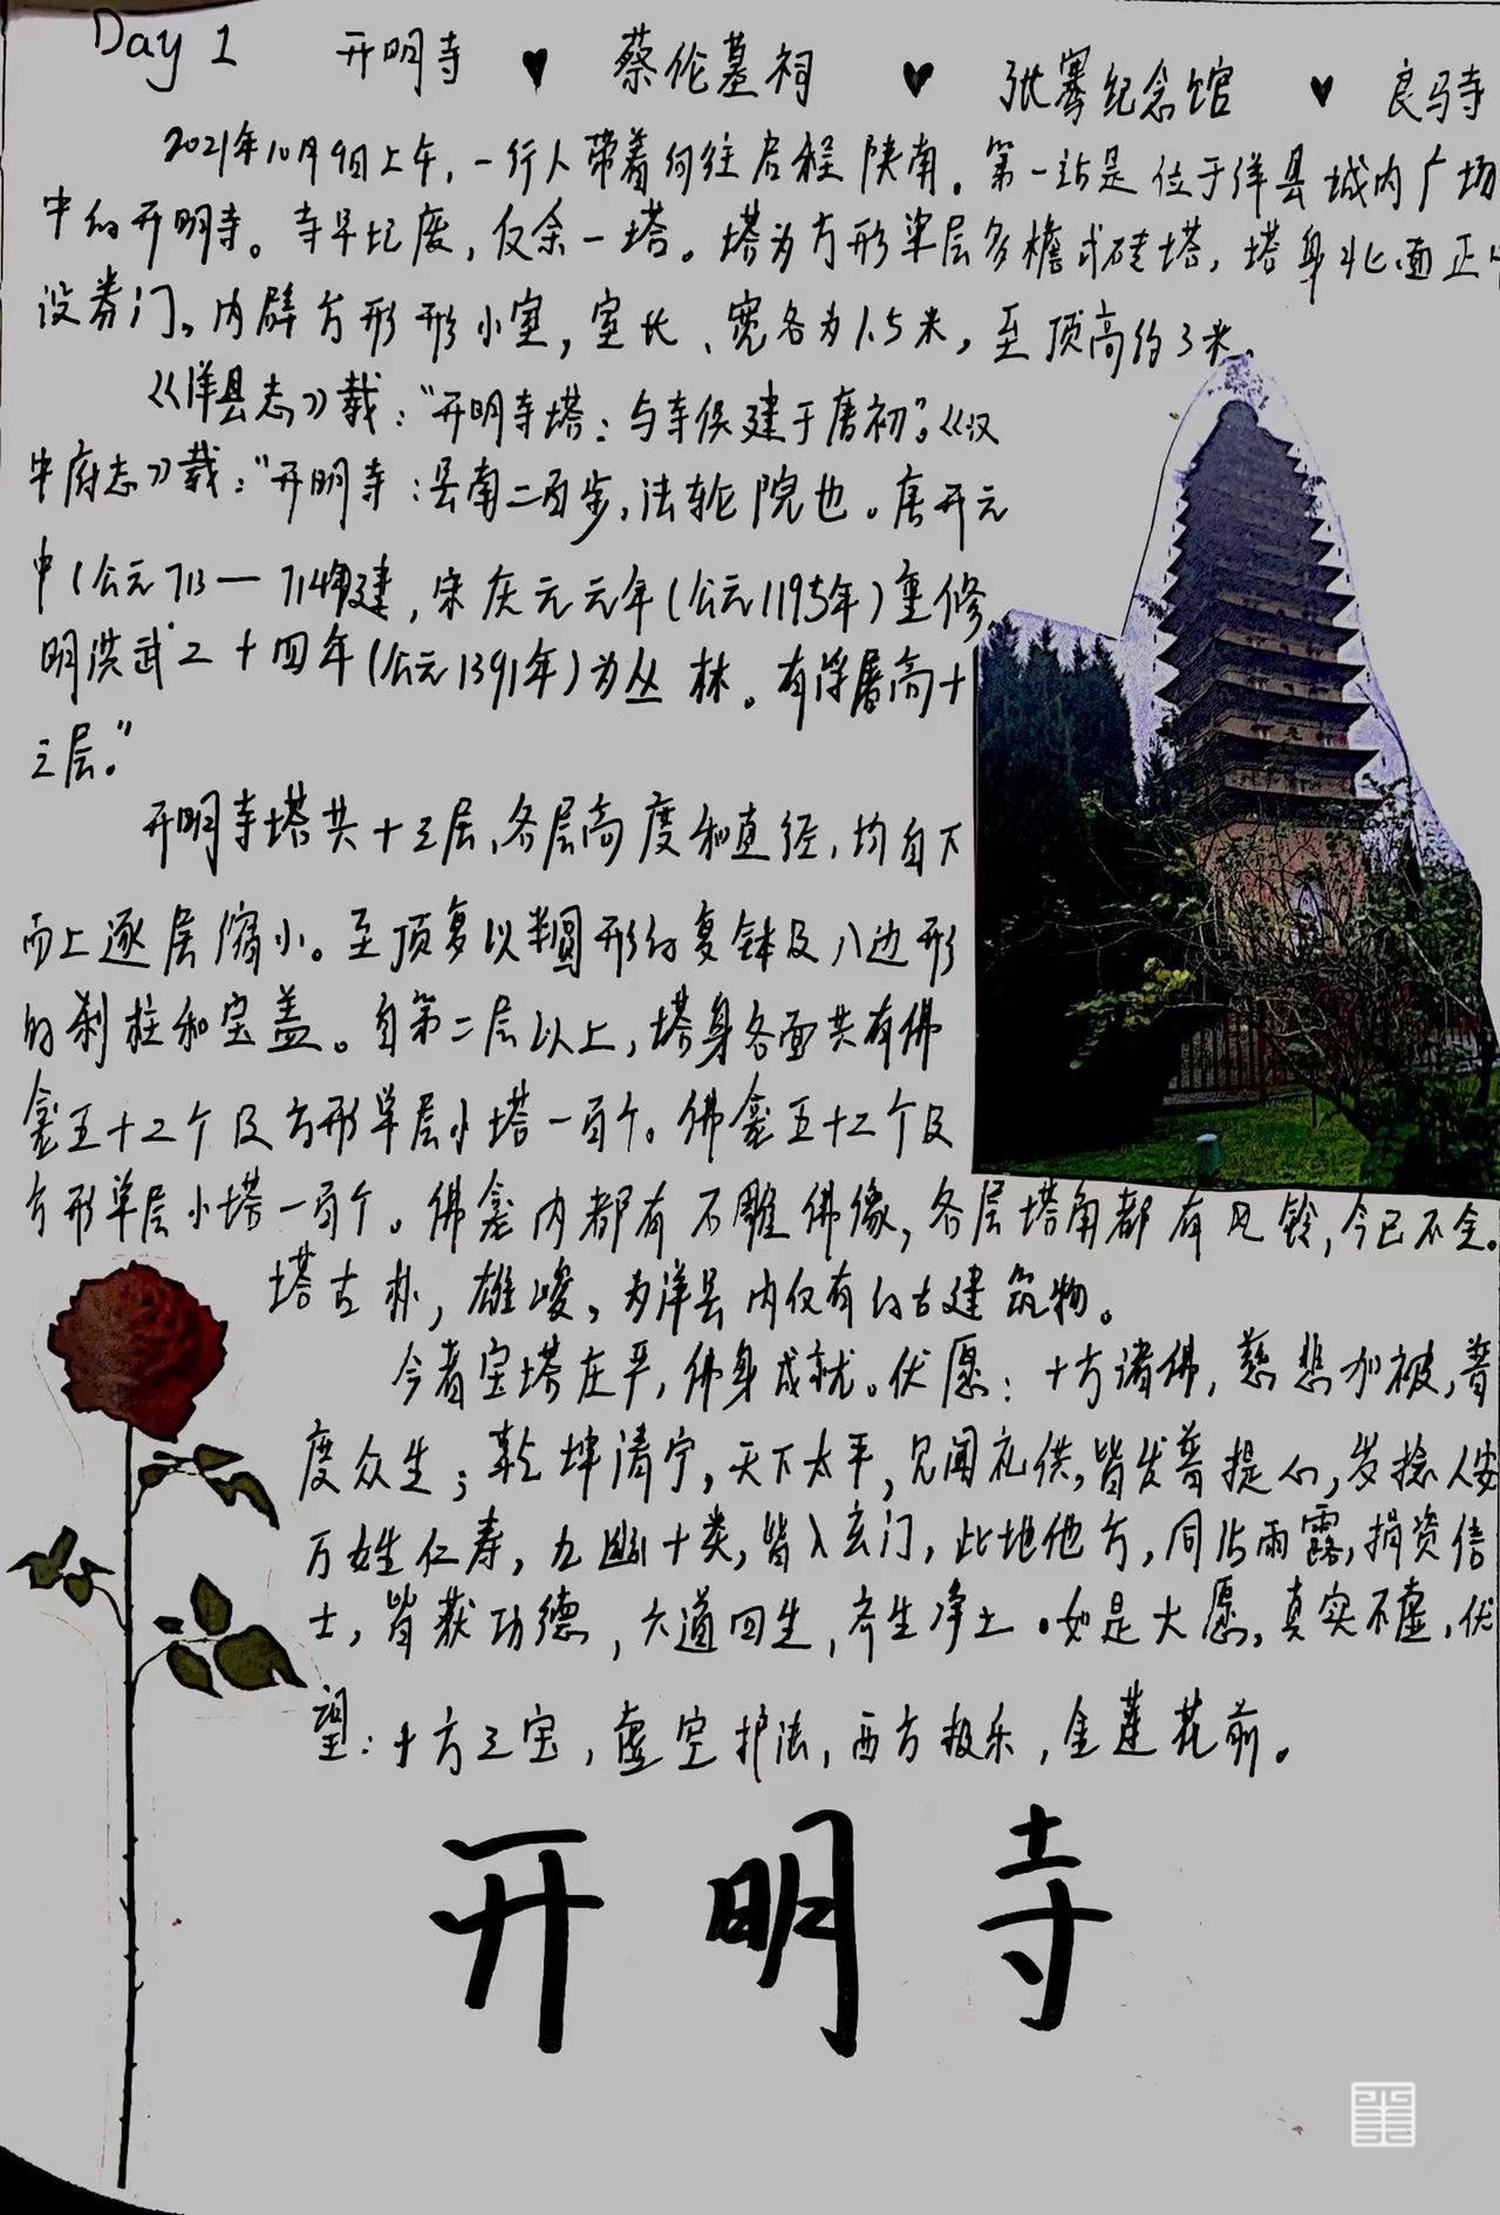 Day 1 开明寺 ♥ 蔡伦墓祠 ♥ 张骞纪念馆 ♥ 良马寺
2021年10月9日上午，一行人带着向往启程陕南。第一站是位于洋县城内广场
中的开明寺。寺早圮废，仅余一塔。塔为方形单层多檐式砖塔，塔身北面正中
设券门，内辟方形形小室，室长、宽各为1.5米，至顶高约3米。
《洋县志》载：“开明寺塔：与寺俱建于唐初”。《汉
中府志》载：“开明寺：县南二百步，法轮院也。唐开元
中（公元713—714年）建，宋庆元元年（公元1195年）重修
明洪武二十四年（公元1391年）为丛林。有浮屠高十
三层。”
开明寺塔共十三层，各层高度和直径，均自下
而上逐层缩小。至顶复以半圆形的复钵及八边形
的刹柱和宝盖。自第二层以上，塔身各面共有佛
龛五十二个及方形单层小塔一百个。佛龛五十二个及
方形单层小塔一百个。佛龛内都有石雕佛像，各层塔角都有风铃，今已不全。
塔古朴，雄峻，为洋县内仅有的古建筑物。
今者宝塔庄严，佛身成就。伏愿：十方诸佛，慈悲加被，普
度众生；乾坤清宁，天下太平，见闻礼供，皆发菩提心，岁稔人安
万姓仁寿，九幽十类，皆入玄门，此地他方，同沾雨露，捐资信
士，皆获功德，六道四生，齐生净土。如是大愿，真实不虚，伏
望：十方三宝，虚空护法，西方极乐，金莲花前。
开明寺